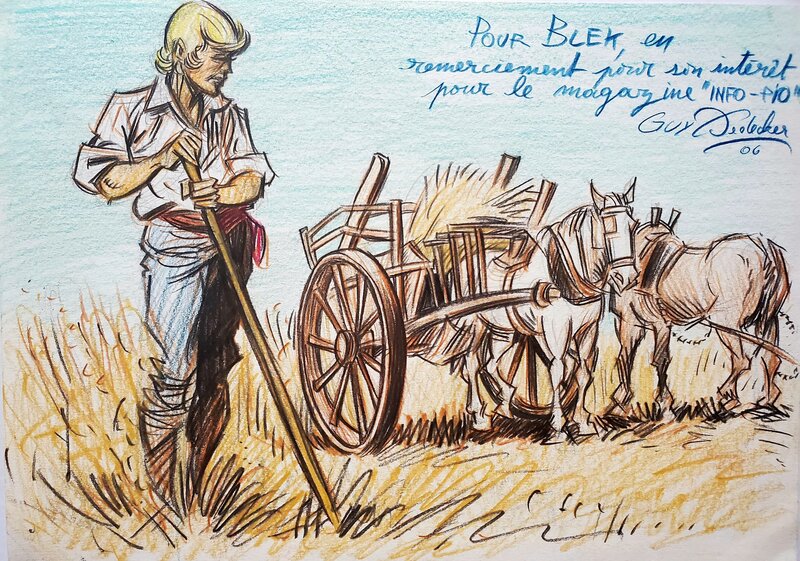 POUR BLEK, en
remerciement pour son intérêt
pour le magazine "INFO-PIO"
GUY Dedecker
06